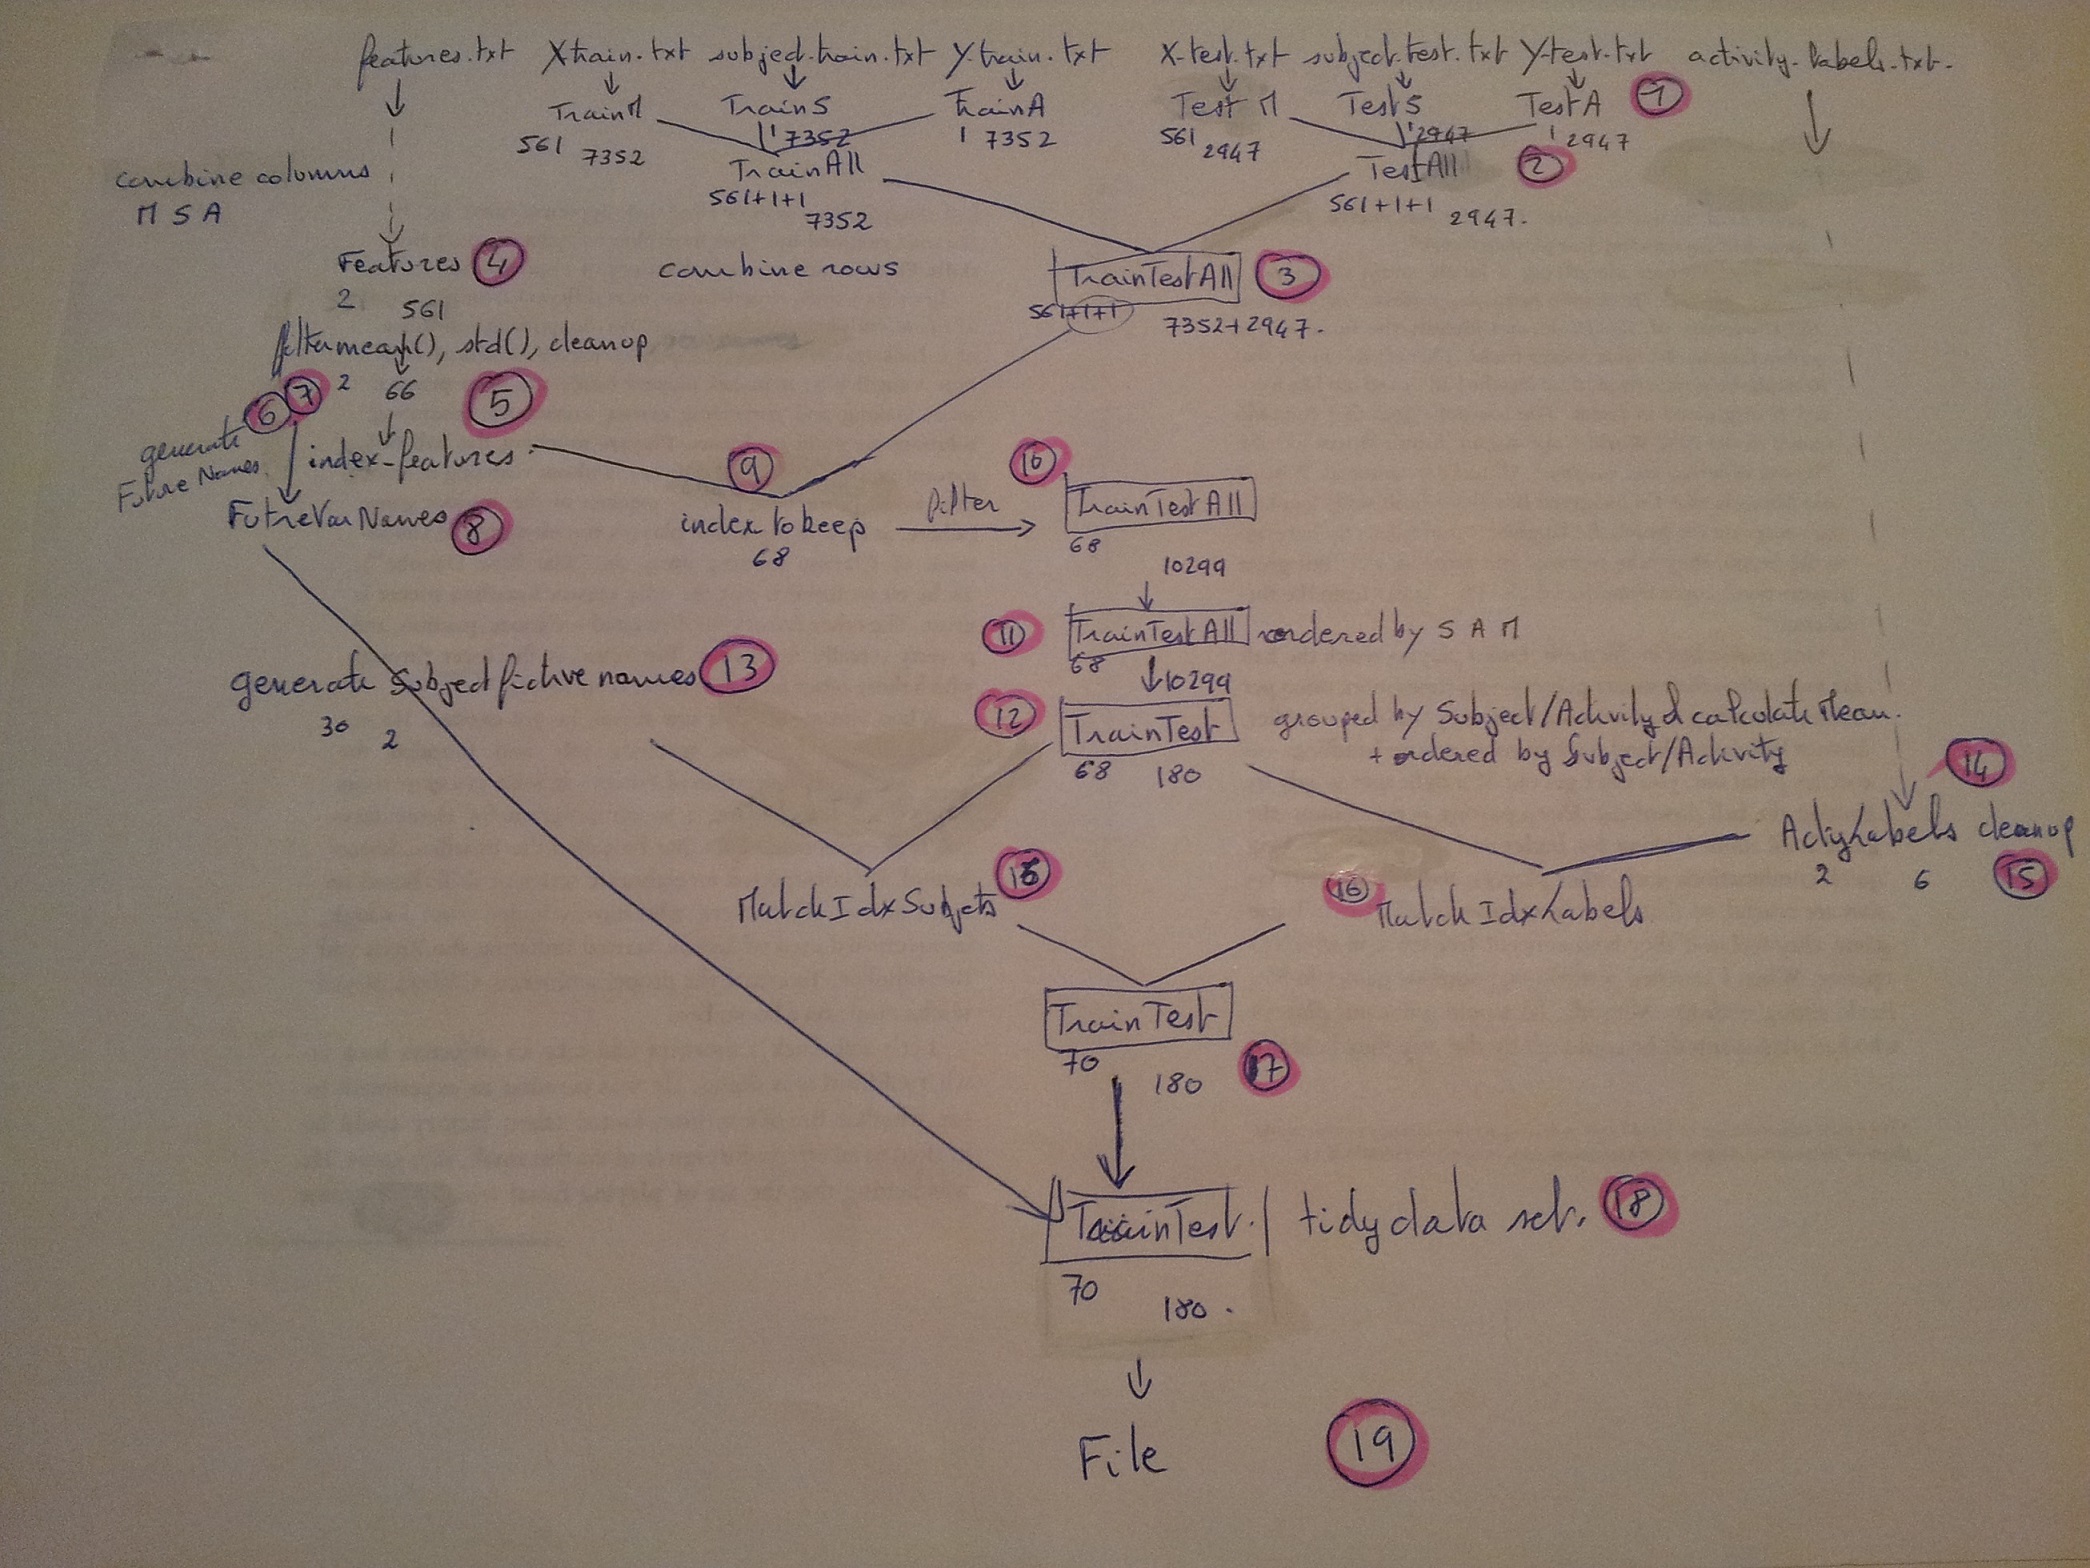 features.txt Xtrain.txt subject.train.txt Y.train.txt X-test.txt subject.test.txt Y-test.txt activity-labels.txt.
TrainM TrainS TrainA Test M TestS TestA 1
561 7352 1 7352 1 7352 561 2947 1 2947 1 2947
combine columns TrainAll TestAll 2
M S A 561+1+1 7352 561+1+1 2947.
Features 4 combine rows TrainTestAll 3
2 561 561+1+1 7352+2947.
filter mean(), std(), cleanup
6 7 2 66 5
generate
Future Names index-features 9 10
FutreVarNames 8 index to keep filter TrainTestAll
68 68
10299
11 TrainTestAll ordered by S A M
68 10299
generate Subject fictive names 13
30 2
12 TrainTest grouped by Subject/Activity & calculate Mean.
+ ordered by Subject/Activity
68 180 14
ActyLabels cleanup
2 6 15
MatchIdxSubjets 16 MatchIdxLabels
TrainTest
70 180 17
TrainTest. tidy data set. 18
70
180.
File 19